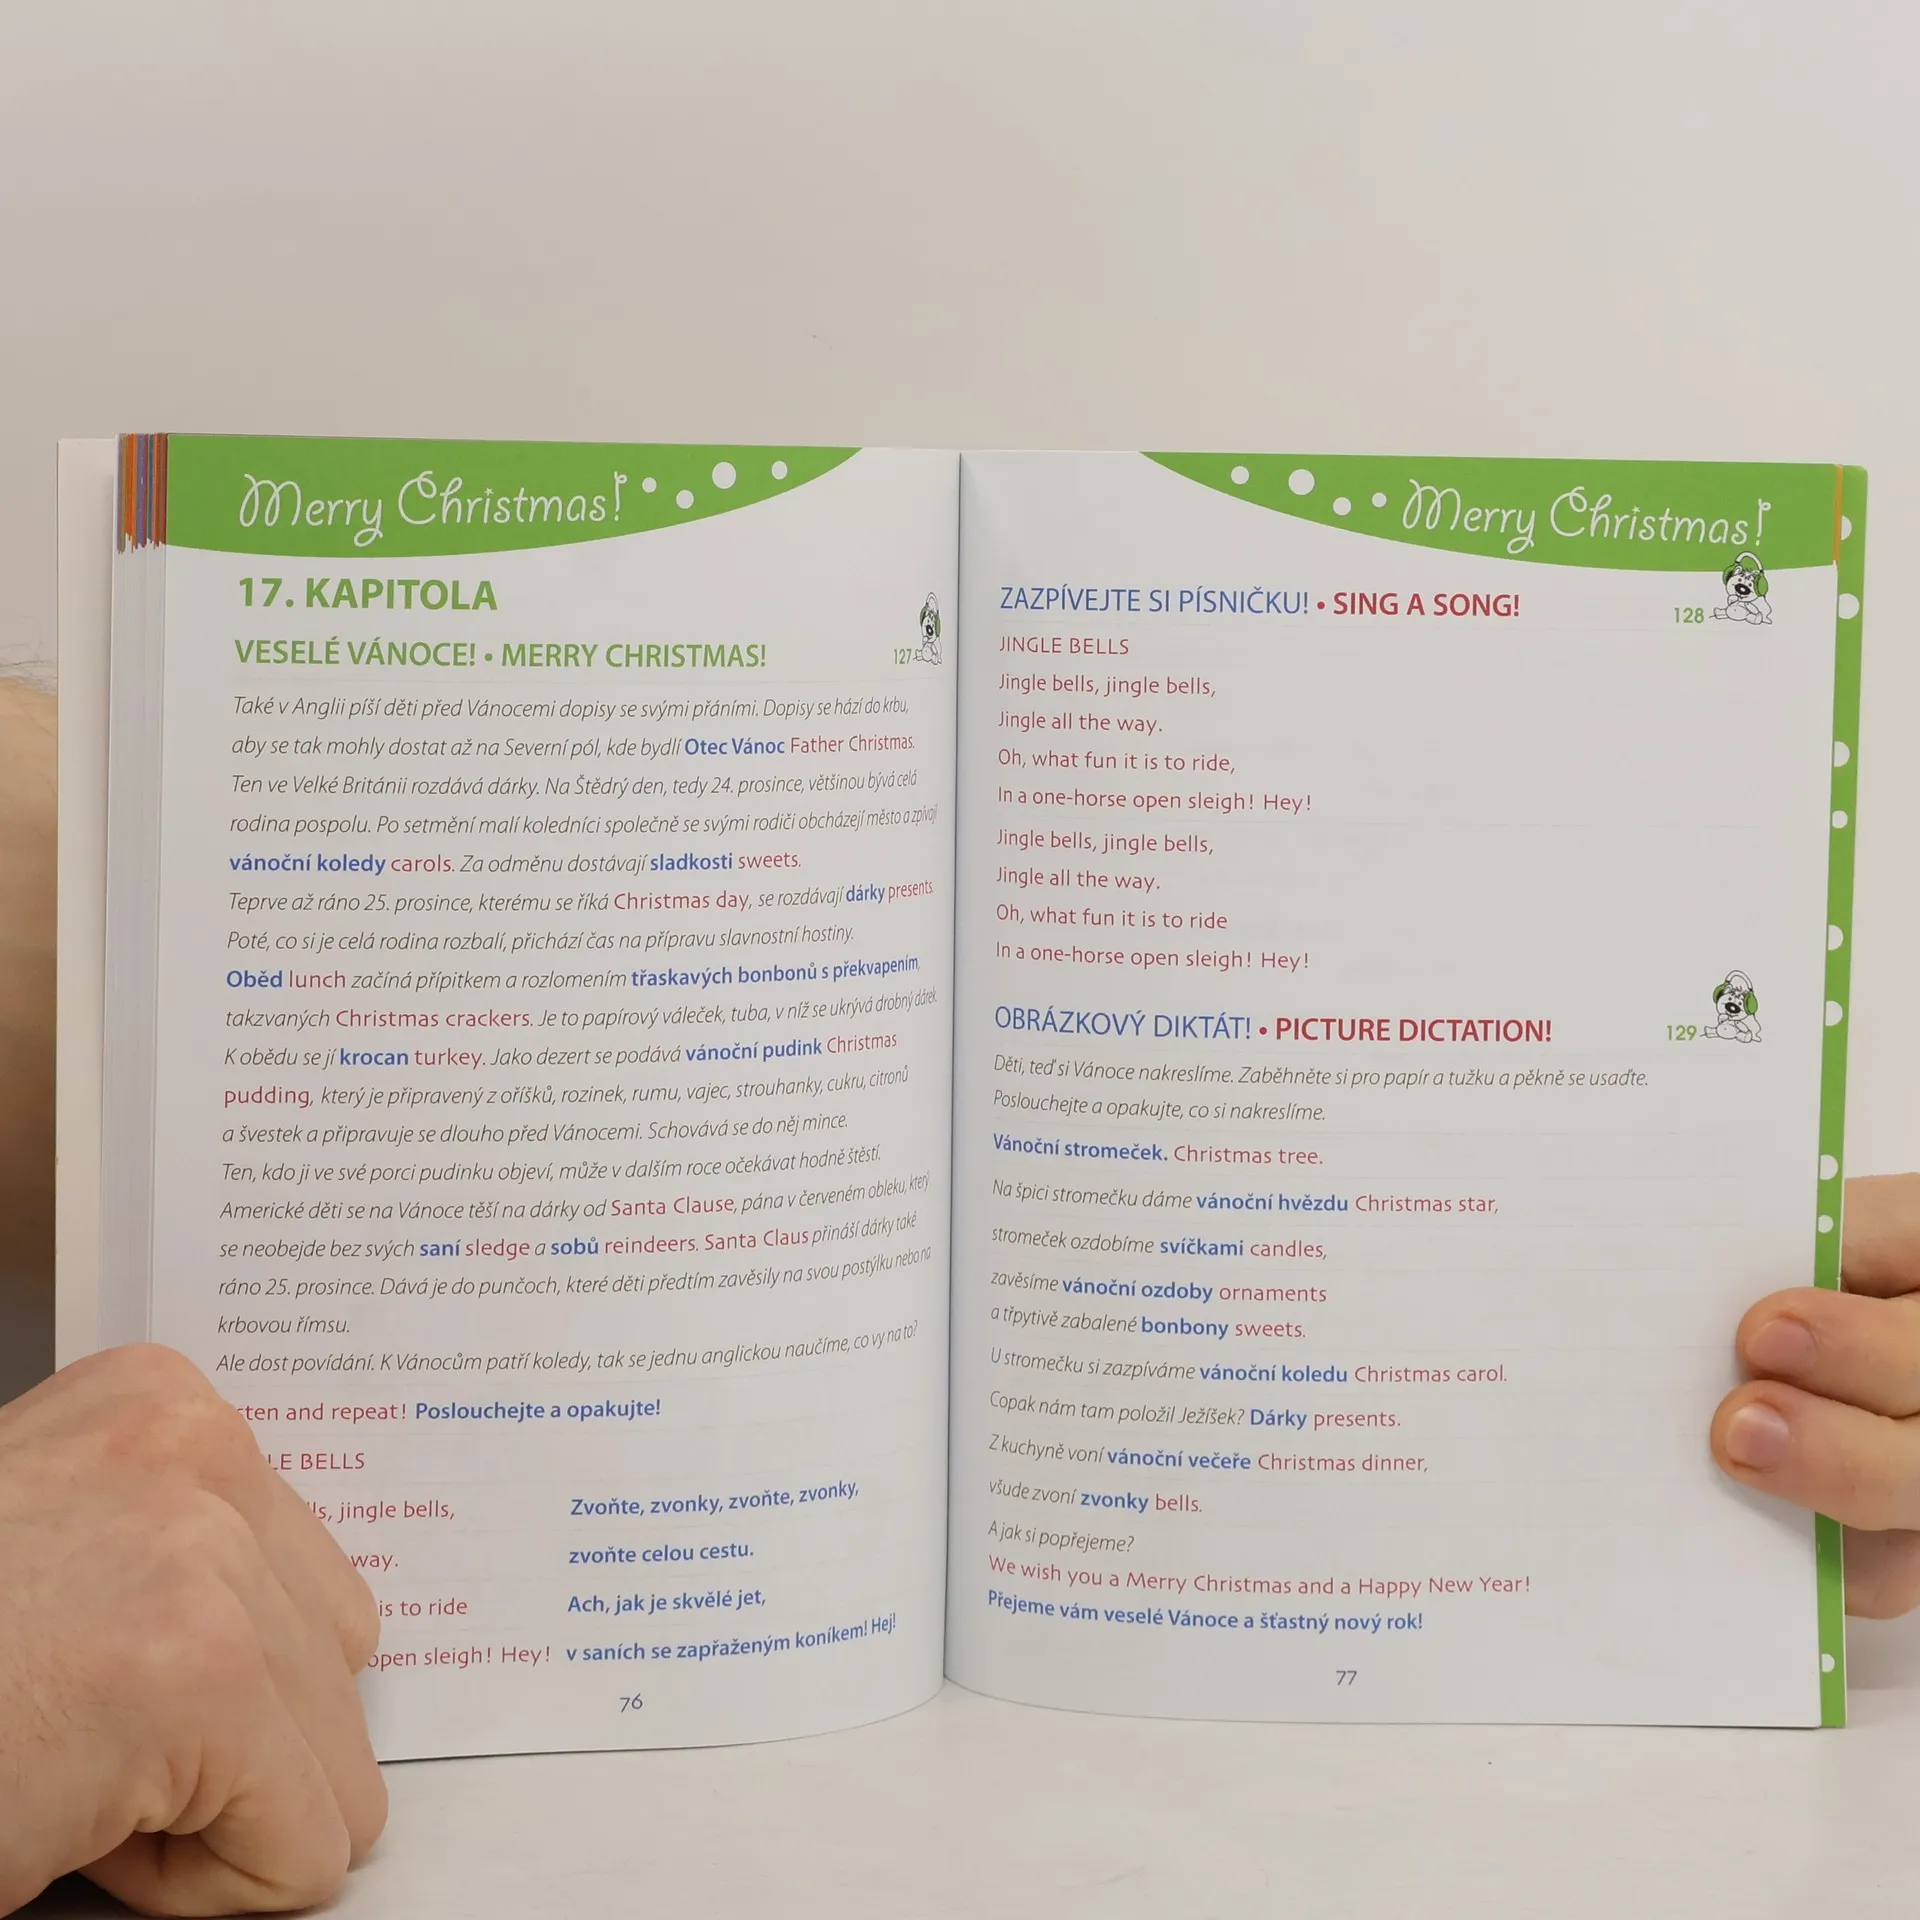 Merry Christmas!
17. KAPITOLA
VESELÉ VÁNOCE! • MERRY CHRISTMAS!
127
Také v Anglii píší děti před Vánocemi dopisy se svými přáními. Dopisy se hází do krbu,
aby se tak mohly dostat až na Severní pól, kde bydlí Otec Vánoc Father Christmas.
Ten ve Velké Británii rozdává dárky. Na Štědrý den, tedy 24. prosince, většinou bývá celá
rodina pospolu. Po setmění malí koledníci společně se svými rodiči obcházejí město a zpívají
vánoční koledy carols. Za odměnu dostávají sladkosti sweets.
Teprve až ráno 25. prosince, kterému se říká Christmas day, se rozdávají dárky presents.
Poté, co si je celá rodina rozbalí, přichází čas na přípravu slavnostní hostiny.
Oběd lunch začíná přípitkem a rozlomením třaskavých bonbonů s překvapením,
takzvaných Christmas crackers. Je to papírový váleček, tuba, v níž se ukrývá drobný dárek.
K obědu se jí krocan turkey. Jako dezert se podává vánoční pudink Christmas
pudding, který je připravený z oříšků, rozinek, rumu, vajec, strouhanky, cukru, citronů
a švestek a připravuje se dlouho před Vánocemi. Schovává se do něj mince.
Ten, kdo ji ve své porci pudinku objeví, může v dalším roce očekávat hodně štěstí.
Americké děti se na Vánoce těší na dárky od Santa Clause, pána v červeném obleku, který
se neobejde bez svých saní sledge a sobů reindeers. Santa Claus přináší dárky také
ráno 25. prosince. Dává je do punčoch, které děti předtím zavěsily na svou postýlku nebo na
krbovou římsu.
Ale dost povídání. K Vánocům patří koledy, tak se jednu anglickou naučíme, co vy na to?
and repeat! Poslouchejte a opakujte!
BELLS
jingle bells, Zvoňte, zvonky, zvoňte, zvonky,
way. zvoňte celou cestu.
is to ride Ach, jak je skvělé jet,
open sleigh! Hey! v saních se zapřaženým koníkem! Hej!
76
Merry Christmas!
ZAZPÍVEJTE SI PÍSNIČKU! • SING A SONG!
128
JINGLE BELLS
Jingle bells, jingle bells,
Jingle all the way.
Oh, what fun it is to ride,
In a one-horse open sleigh! Hey!
Jingle bells, jingle bells,
Jingle all the way.
Oh, what fun it is to ride
In a one-horse open sleigh! Hey!
OBRÁZKOVÝ DIKTÁT! • PICTURE DICTATION!
129
Děti, teď si Vánoce nakreslíme. Zaběhněte si pro papír a tužku a pěkně se usaďte.
Poslouchejte a opakujte, co si nakreslíme.
Vánoční stromeček. Christmas tree.
Na špici stromečku dáme vánoční hvězdu Christmas star,
stromeček ozdobíme svíčkami candles,
zavěsíme vánoční ozdoby ornaments
a třpytivě zabalené bonbony sweets.
U stromečku si zazpíváme vánoční koledu Christmas carol.
Copak nám tam položil Ježíšek? Dárky presents.
Z kuchyně voní vánoční večeře Christmas dinner,
všude zvoní zvonky bells.
A jak si popřejeme?
We wish you a Merry Christmas and a Happy New Year!
Přejeme vám veselé Vánoce a šťastný nový rok!
77